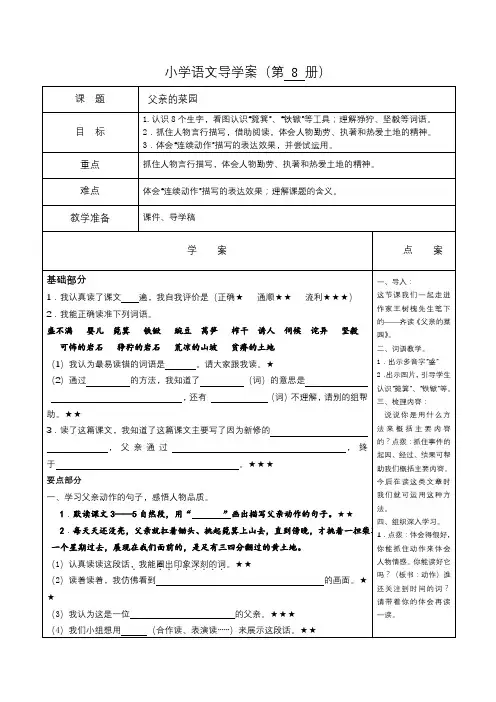 小学语文导学案（第 8 册）
课 题
父亲的菜园
目 标
1.认识8个生字，看图认识“篼箕”、“铁锨”等工具；理解狰狞、坚毅等词语。
2．抓住人物言行描写，借助阅读，体会人物勤劳、执著和热爱土地的精神。
3．体会“连续动作”描写的表达效果，并尝试运用。
重点
抓住人物言行描写，体会人物勤劳、执著和热爱土地的精神。
难点
体会“连续动作”描写的表达效果；理解课题的含义。
教学准备
课件、导学稿
学 案
基础部分
1．我认真读了课文 遍，我自我评价是（正确★ 通顺★★ 流利★★★）
2．我能正确读准下列词语。
盛不满 婴儿 篼箕 铁锨 豌豆 莴笋 榨干 诱人 伺候 诧异 坚毅
可怖的岩石 狰狞的岩石 荒凉的山坡 贫瘠的土地
（1）我认为最易读错的词语是 ，请大家跟我读。★
（2）通过 的方法，我知道了 （词）的意思是
，还有 （词）不理解，请别的组帮
助。★★
3．读了这篇课文，我知道了这篇课文主要写了因为新修的
，父亲通过 ，终
于 。★★★
要点部分
一、学习父亲动作的句子，感悟人物品质。
1．默读课文3——5自然段，用“ ”画出描写父亲动作的句子。★★
2．每天天还没亮，父亲就扛着锄头、挑起篼箕上山去，直到傍晚，才挑着一担柴草
一个星期过去，展现在我们面前的，是足有三四分翻过的黄土地。
（1）认真读读这段话，我能圈出印象深刻的词。★★
（2）读着读着，我仿佛看到 的画面。★
★
（3）我认为这是一位 的父亲。★★★
（4）我们小组想用 （合作读、表演读……）来展示这段话。★★
点 案
一、导入：
这节课我们一起走进
作家王树槐先生笔下
的——齐读《父亲的菜
园》。
二、词语教学。
1．出示多音字“盛”
2．出示图片，引导学生
认识“篼箕”、“铁锨”等。
三、梳理内容：
说说你是用什么方
法来概括主要内容
的？点拨：抓住事件的
起因、经过、结果可帮
助我们概括主要内容。
今后在读这类文章时
我们就可运用这种方
法。
四、组织深入学习。
1．点拨：体会得很好，
你能抓住动作来体会
人物情感。你能读好它
吗？（板书：动作）谁
还关注到时间的词？
请带着你的体会再读
一读。